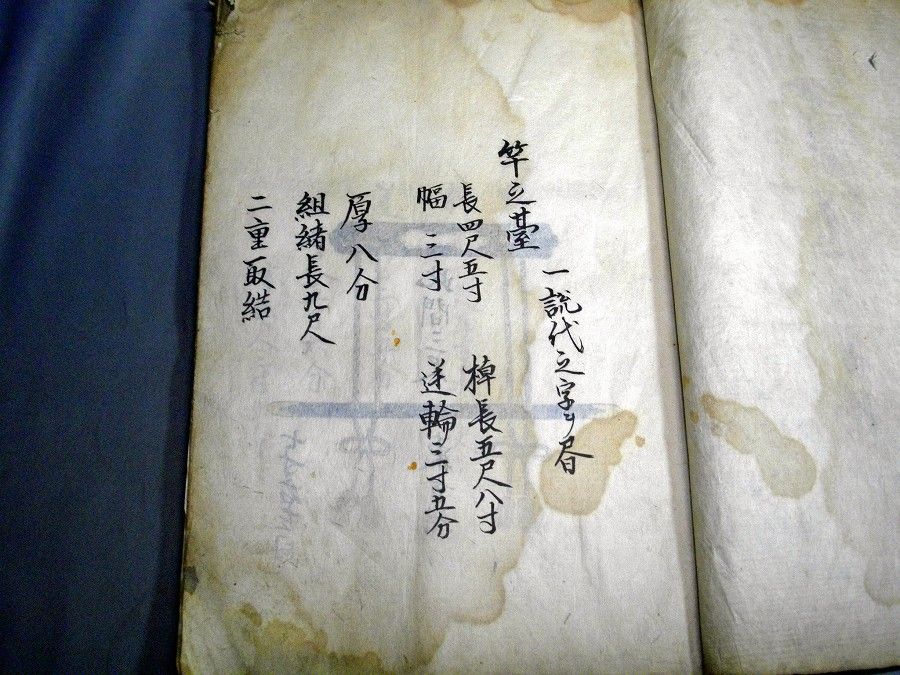 竿之臺
一説代之字ヲ㫪
長四尺五寸 棹長五尺八寸
幅三寸 送輪三寸五分
厚八分
組緒長九尺
二重取結